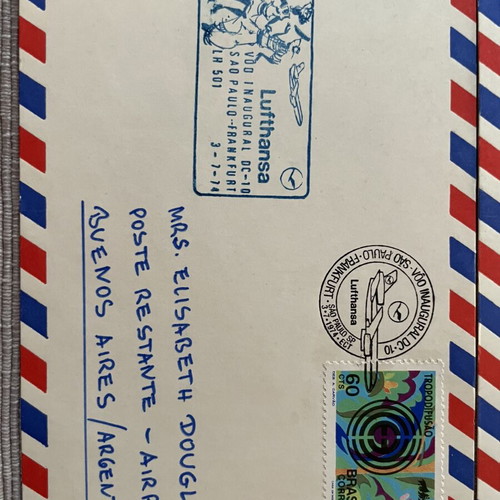 Lufthansa
VÔO INAUGURAL DC-10
SAO PAULO-FRANKFURT
LH 501
3-7-74
VÔO INAUGURAL DC-10
SAO PAULO-FRANKFURT
Lufthansa
SÃO PAULO SP
3-7-1974-ECT
TROPODIFUSÃO
60
CTS
BRAS
CORR
MRS. ELISABETH DOUGL
POSTE RESTANTE - AIR
BUENOS AIRES/ARGENT